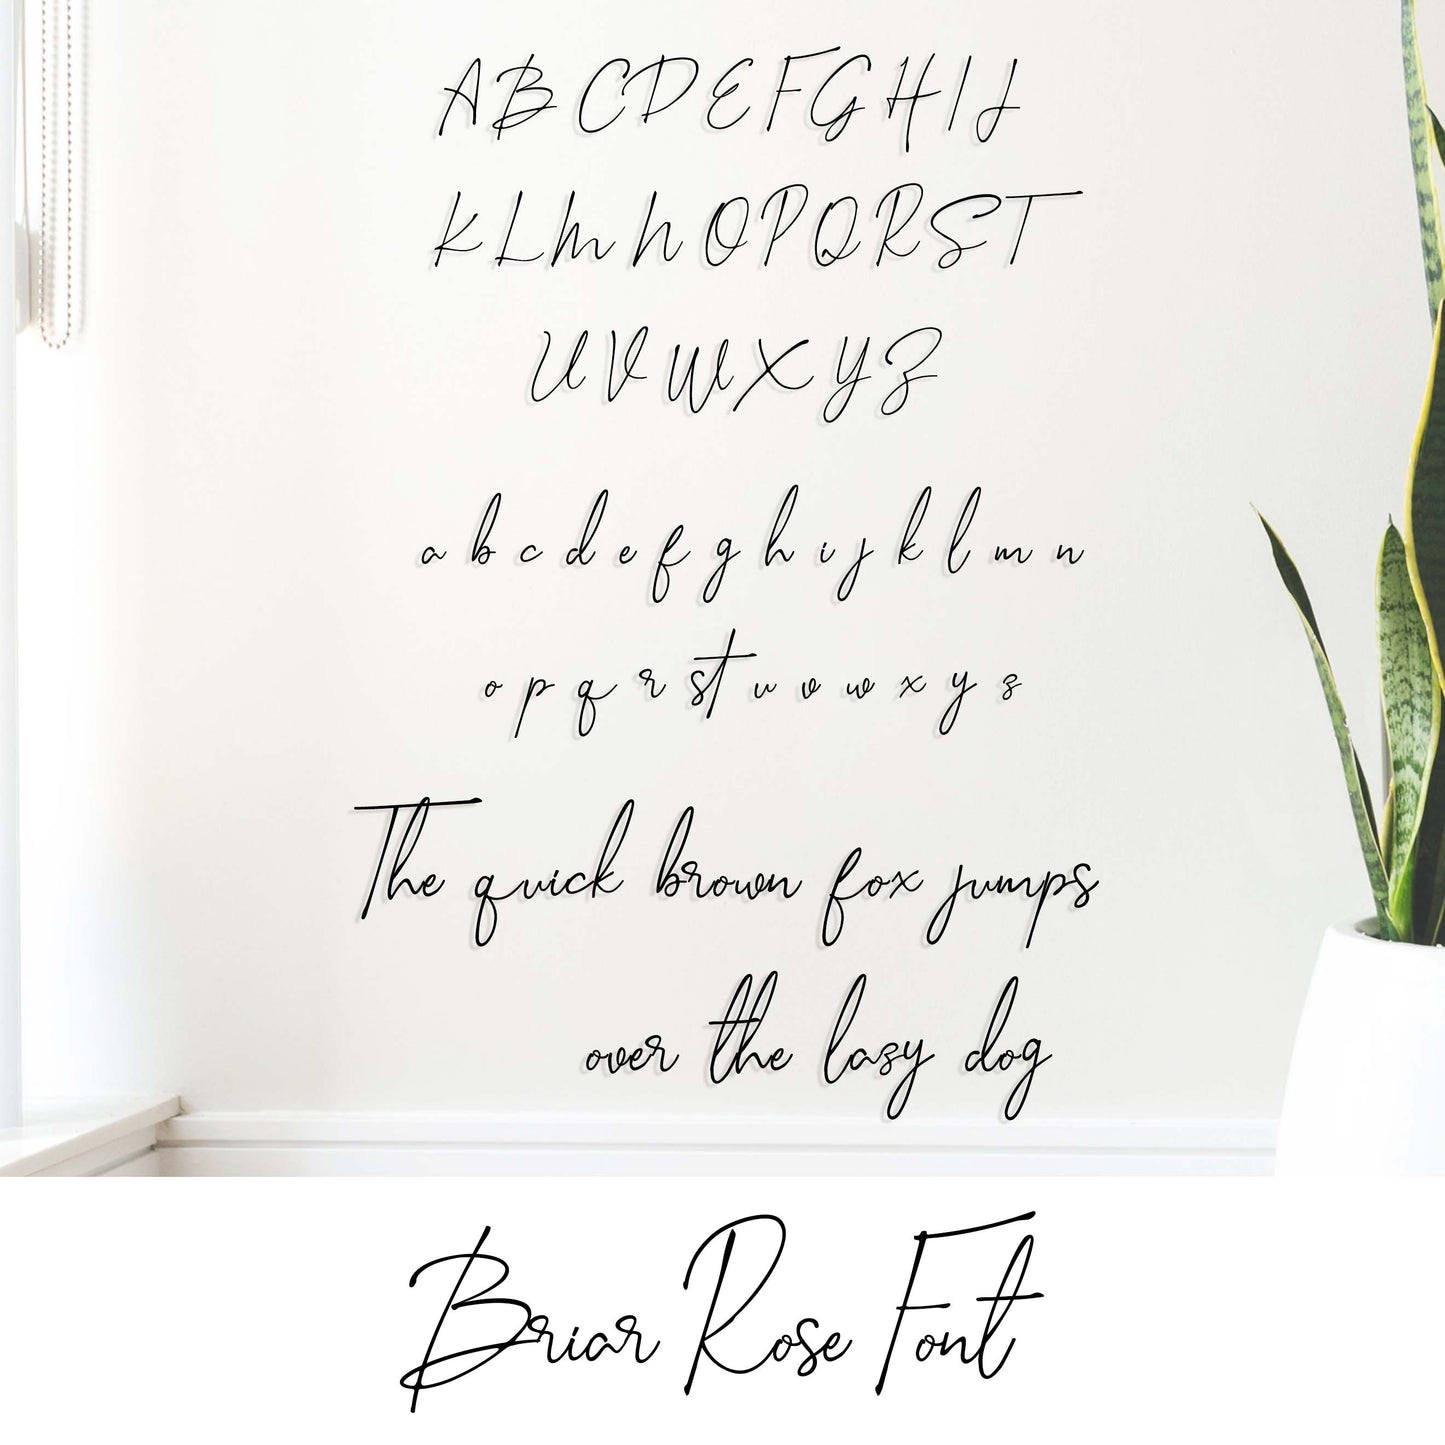 A B C D E F G H I J
K L M N O P Q R S T
U V W X Y Z
a b c d e f g h i j k l m n
o p q r s t u v w x y z
The quick brown fox jumps
over the lazy dog
Briar Rose Font